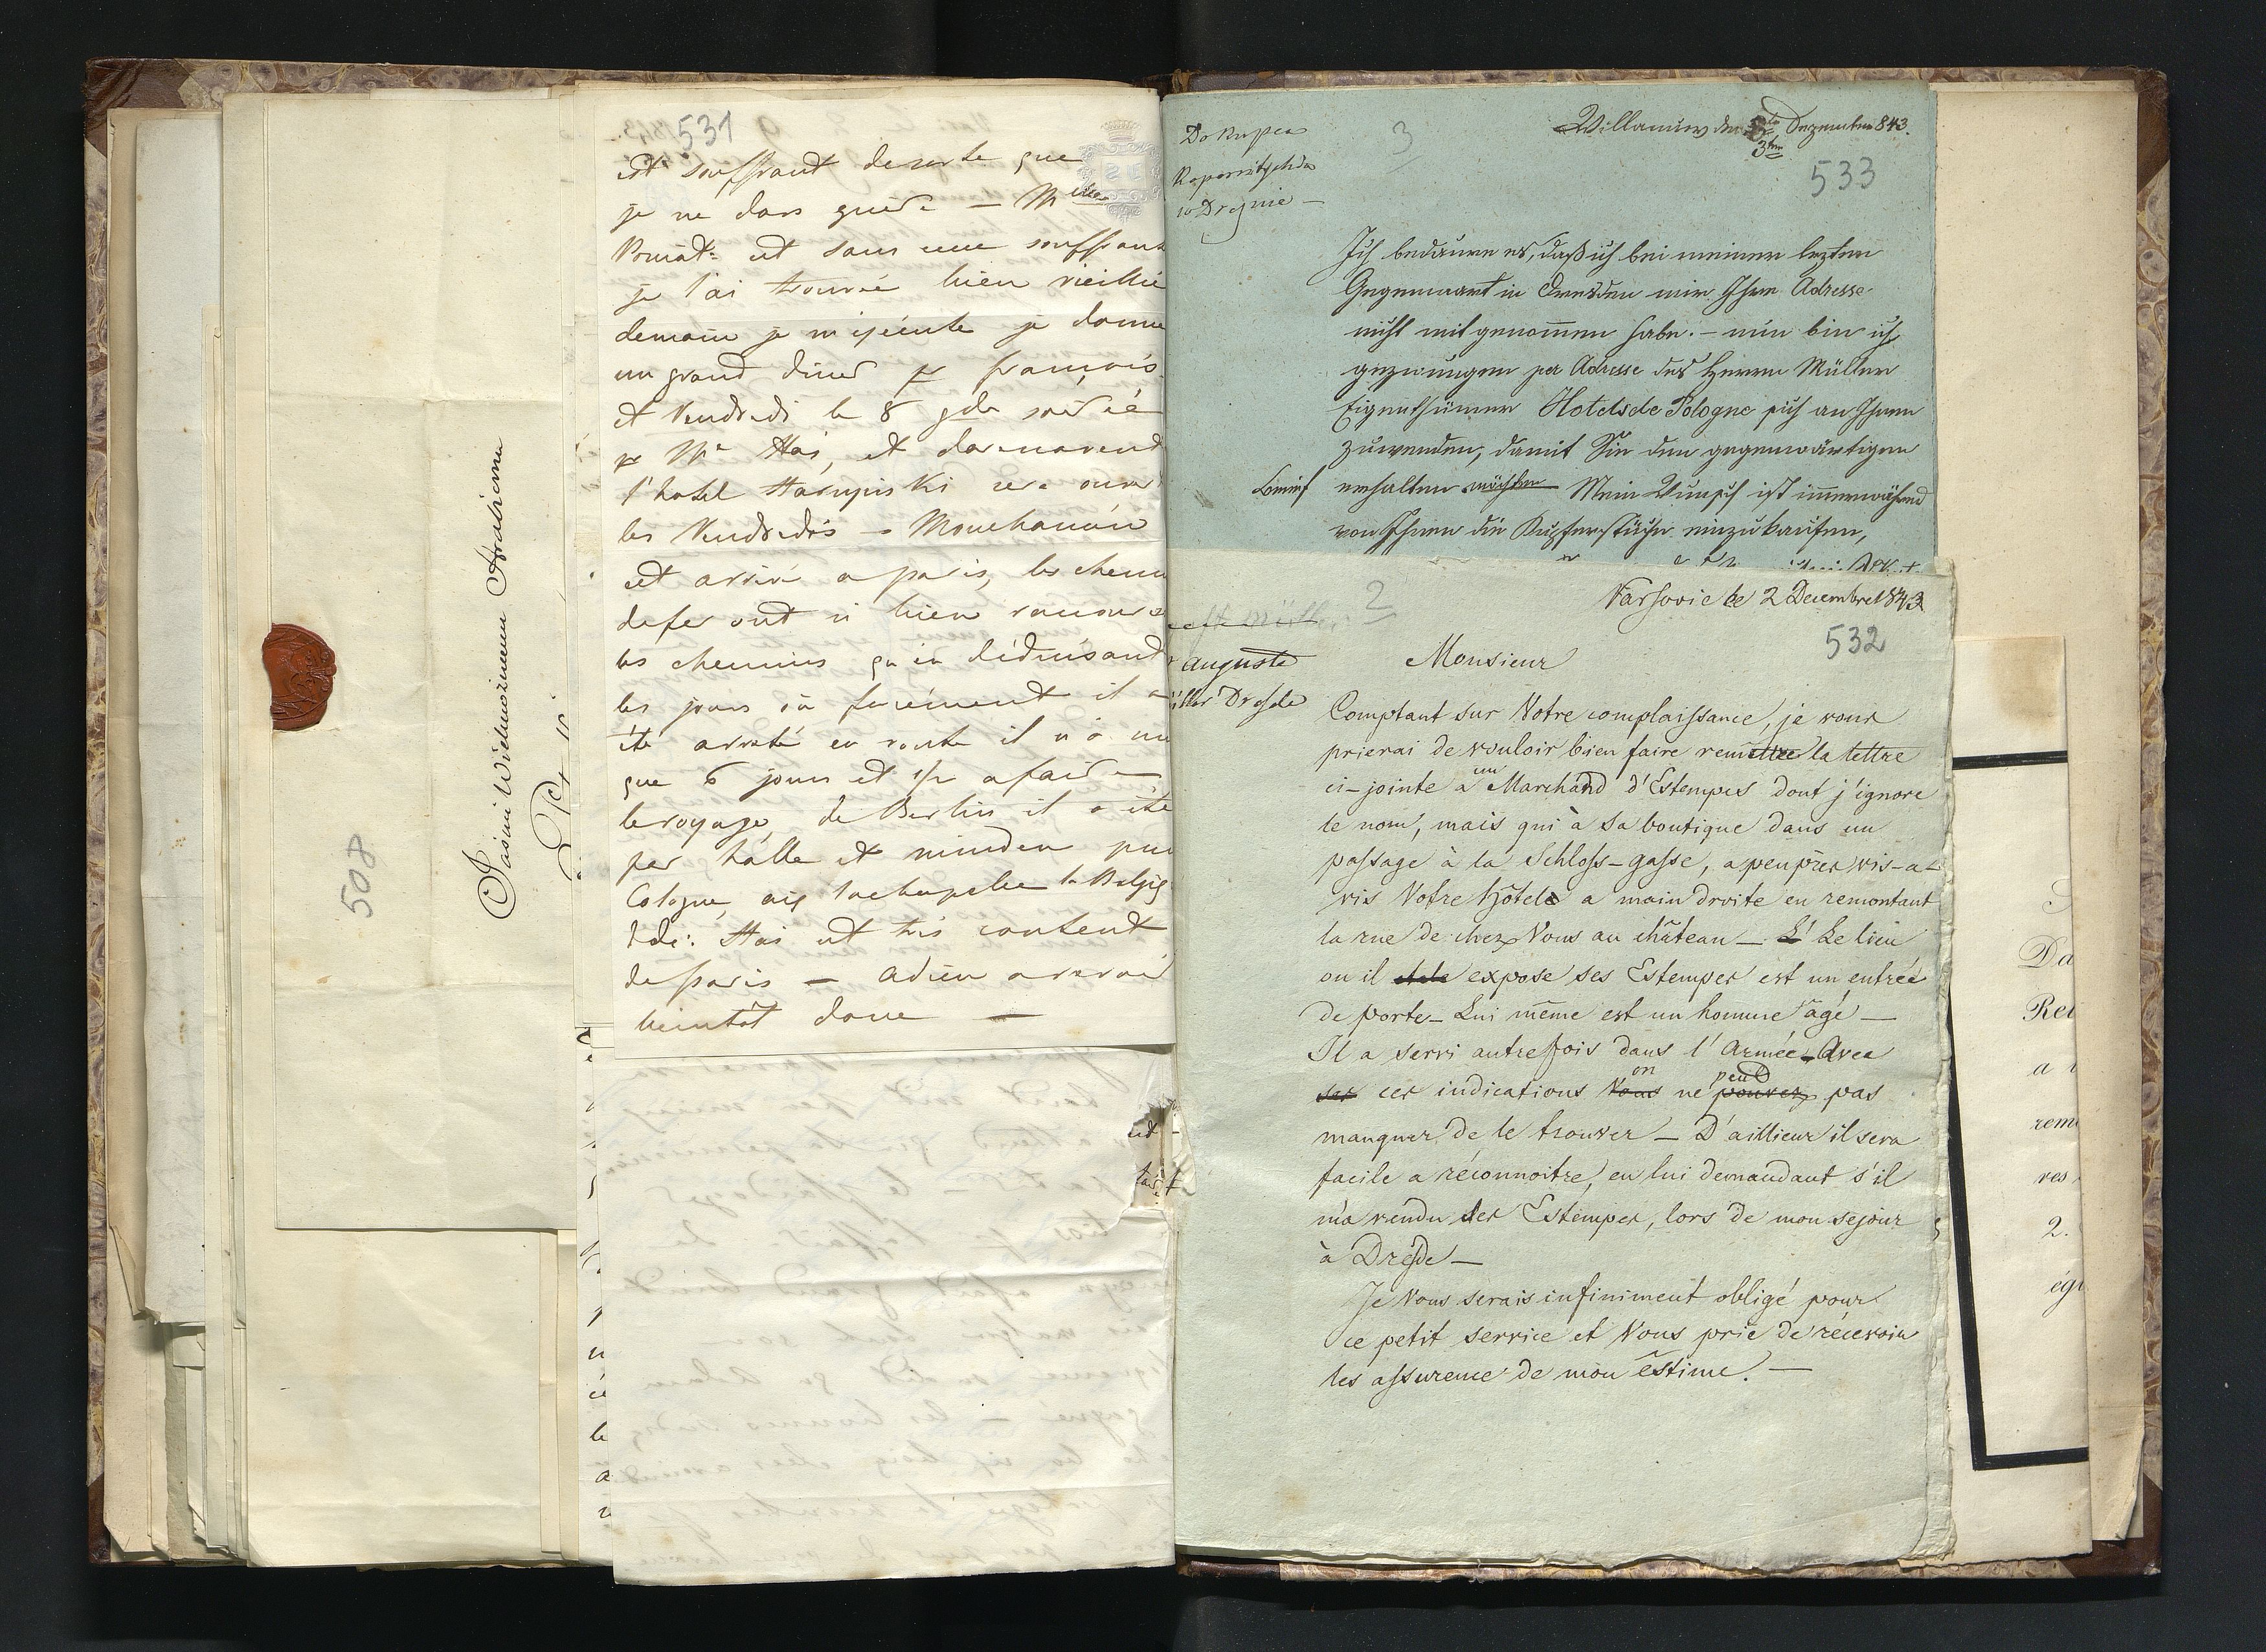 508
Jaśnie Wielmożnemu
531
est souffrant de sorte que
je ne dors guère — Mme
et sans une souffrans
je l'ai trouvée bien vieillie
demain je m'exécute je donne
un grand diner pr francois
et Vendredi le 8 gde soirée
pr Me Stas, et dorenavent
l'hotel sera ouve
les Vendredis —
est arrivé a paris, les chem
de fer ont si bien
les chemins qu'en déduisant
les jours où forcément il a
été arreté en route il n'a mi
que 6 jours et 1/2 a faire
le voyage, de Berlin il a été
par halle et minden pui
Cologne, aix lachapelle la Belgiq
Stas est très content
de paris — adieu a revoir
bientôt donc —
Do kupca
Kopersztychów
w Dreznie —
3
Willanów den 2ten Dezember 843.
3ten
533
Ich bedaure es, daß ich bei meiner lezten
Gegenwart in Dresden mir Ihre Adresse
nicht mit genommen habe. — nun bin ich
gezwungen per Adresse des Herrn Müller
Eigenthümer Hotels de Pologne sich an Ihnen
zuwenden, damit Sie den gegenwärtigen
erhalten möchten Mein Wunsch ist immerwährend
von Ihnen die Kupferstüche einzukaufen,
2
Varsovie le 2 Decembre 1843
532
Auguste
Dresde
Monsieur
Comptant sur Votre complaissance, je vous
prierai de vouloir bien faire remettre la lettre
ci-jointe a un Marchand d'Estempes dont j'ignore
le nom, mais qui à sa boutique dans un
passage à la Schloss-gasse, a peuprès vis-a-
vis Votre hôtel a main droite en remontant
la rue de chez Vous au château — L' Le lieu
ou il expose ses Estempes est un entrée
de porte — Lui même est un homme âgé —
Il a servi autrefois dans l'Armée. Avec
ses ces indications Vous on ne pouvez peut pas
manquer de le trouver — D'aillieur il sera
facile a réconnoitre, en lui demandant s'il
m'a vendu des Estempes, lors de mon sejour
à Dresde —
Je Vous serais infiniment obligé pour
ce petit service et Vous prie de récevoir
les assurence de mon estime. —
Da
Rei
rem
res
2.
ég